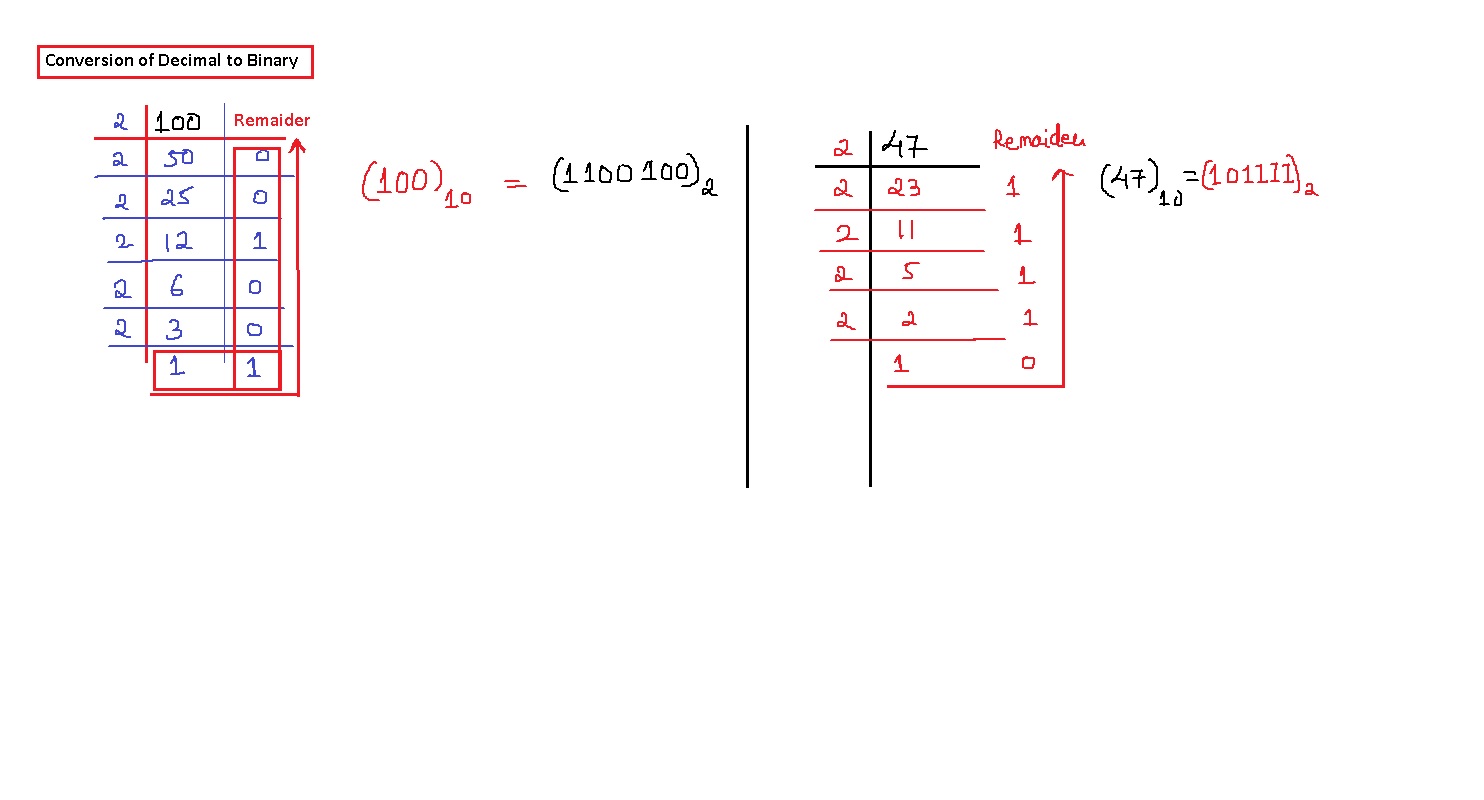 Conversion of Decimal to Binary
2 100 Remaider
2 50 0
2 25 0
2 12 1
2 6 0
2 3 0
1 1
(100)10 = (1100100)2
2 47 Remaider
2 23 1
2 11 1
2 5 1
2 2 1
1 0
(47)10=(101111)2